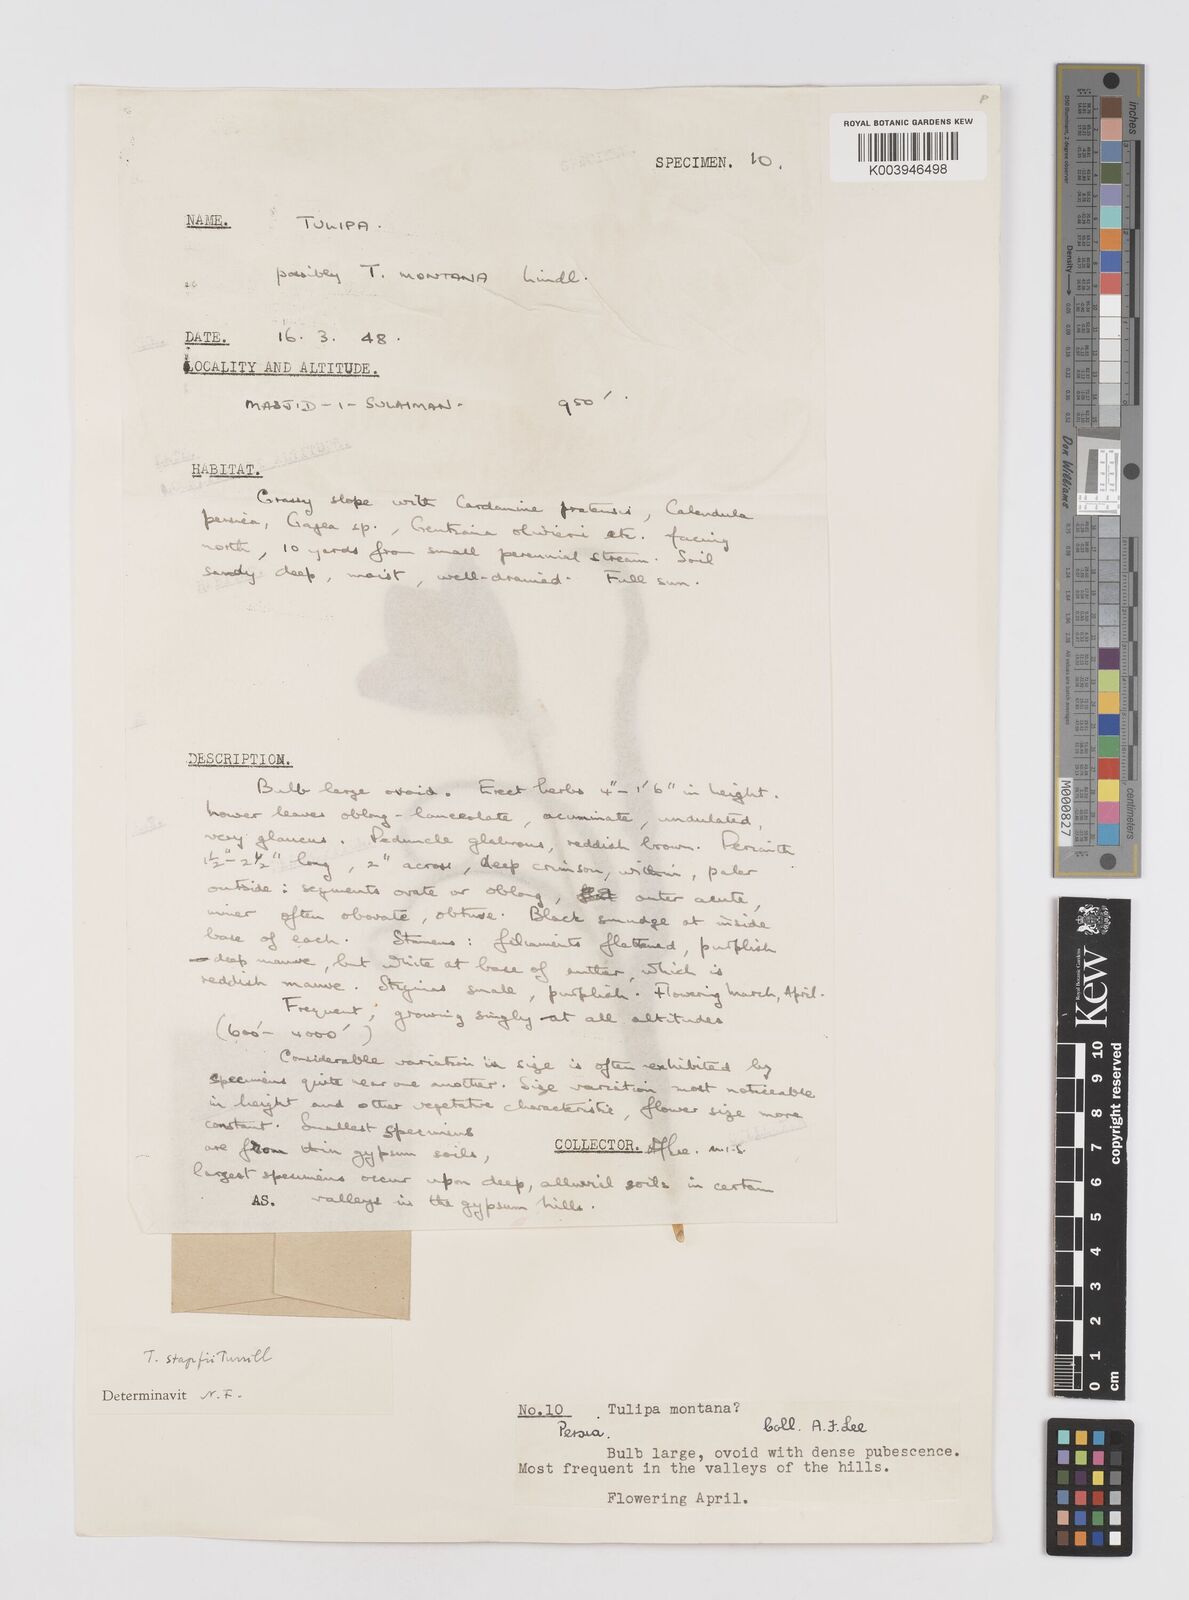 ROYAL BOTANIC GARDENS KEW
K003946498
SPECIMEN. 10.
NAME. TULIPA.
possibly T. MONTANA Lindl.
DATE. 16. 3. 48.
LOCALITY AND ALTITUDE.
MASJID-I-SULAIMAN. 950'.
HABITAT.
Grassy slope with Cardamine pratensis, Calendula
persica, Gagea sp., Gentiana olivieri etc. facing
north, 10 yards from small perennial stream. Soil
sandy deep, moist, well-drained. Full sun.
DESCRIPTION.
Bulb large ovoid. Erect herbs 4"-1'6" in height.
Lower leaves oblong-lanceolate, acuminate, undulated,
very glaucus. Peduncle glabrous, reddish brown. Perianth
1½"-2½" long, 2" across, deep crimson, within, paler
outside: segments ovate or oblong, outer acute,
inner often obovate, obtuse. Black smudge at inside
base of each. Stamens: filaments flattened, purplish
-deep mauve, but white at base of anther, which is
reddish mauve. Stigmas small, purplish. Flowering March, April.
Frequent, growing singly at all altitudes
(600'- 4000')
Considerable variation in size is often exhibited by
specimens quite near one another. Size variation most noticeable
in height and other vegetative characteristic, flower size more
constant. Smallest specimens
are from thin gypsum soils, COLLECTOR. AFLee. M.I.S.
largest specimens occur upon deep, alluvial soils in certain
AS. valleys in the gypsum hills.
T. stapfii Turrill
Determinavit N.F.
No.10 Tulipa montana?
Persia. Coll. A.F. Lee
Bulb large, ovoid with dense pubescence.
Most frequent in the valleys of the hills.
Flowering April.
inches
Density
Don Williams
centimeters
M000827
Royal Botanic Gardens
Kew
copyright reserved
0 1 2 3 4 5 6 7 8 9 10
cm